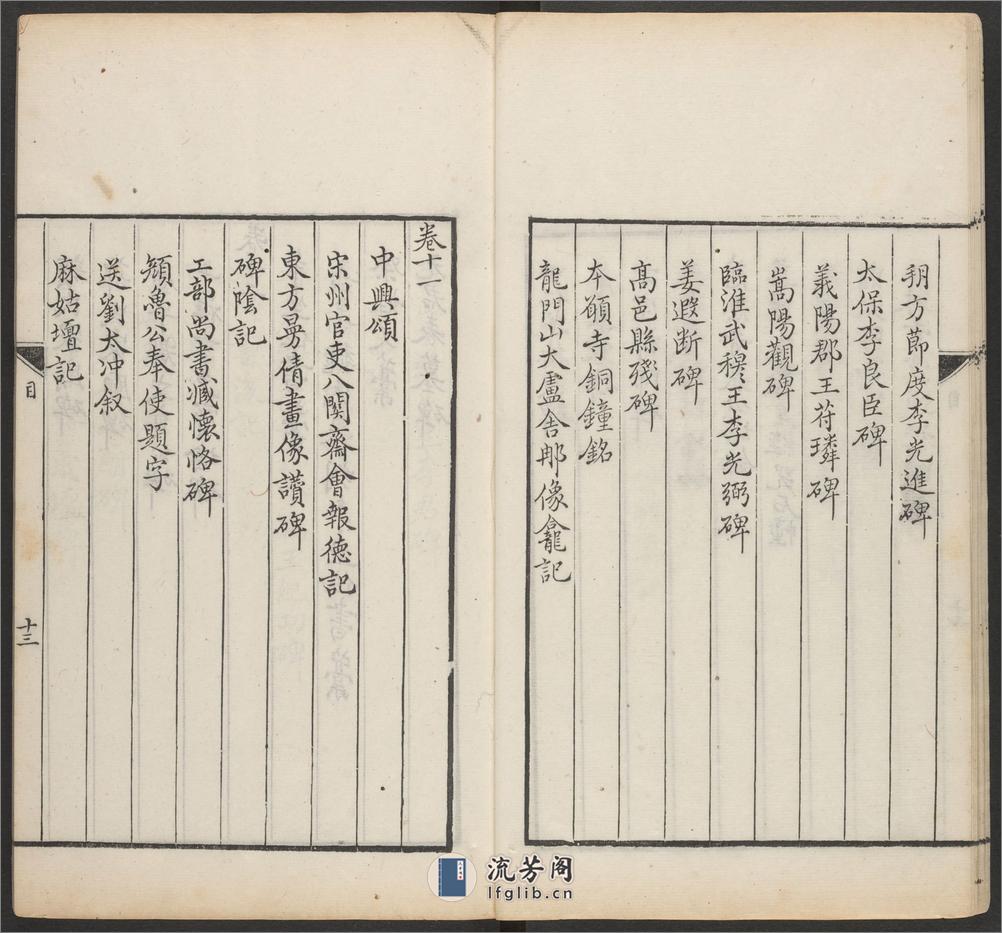 朔方莭度李光進碑
太保李良臣碑
義陽郡王苻璘碑
嵩陽觀碑
臨淮武穆王李光弼碑
姜遐断碑
髙邑縣殘碑
夲願寺銅鐘銘
龍門山大盧舎那像龕記
卷十一
中興頌
宋州官吏八関齋會報德記
東方曼倩畫像讚碑
碑陰記
工部尚書臧懷恪碑
顔魯公奉使題字
送劉太冲叙
麻姑壇記
目
十三
流芳阁
lfglib.cn